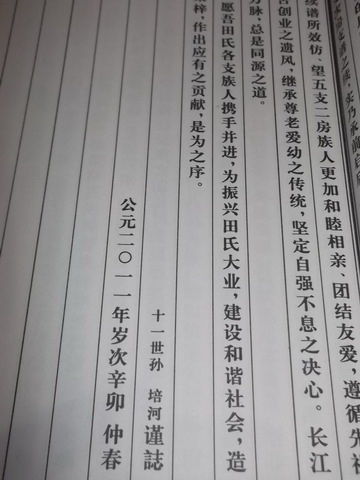 续谱所效仿、望五支二房族人更加和睦相亲、团结友爱,遵循先祖
创业之遗风,继承尊老爱幼之传统,坚定自强不息之决心。长江
万脉,总是同源之道。
愿吾田氏各支族人携手并进,为振兴田氏大业,建设和谐社会,造
梓,作出应有之贡献,是为之序。
十一世孙 培河谨誌
公元二〇一一年岁次辛卯 仲春